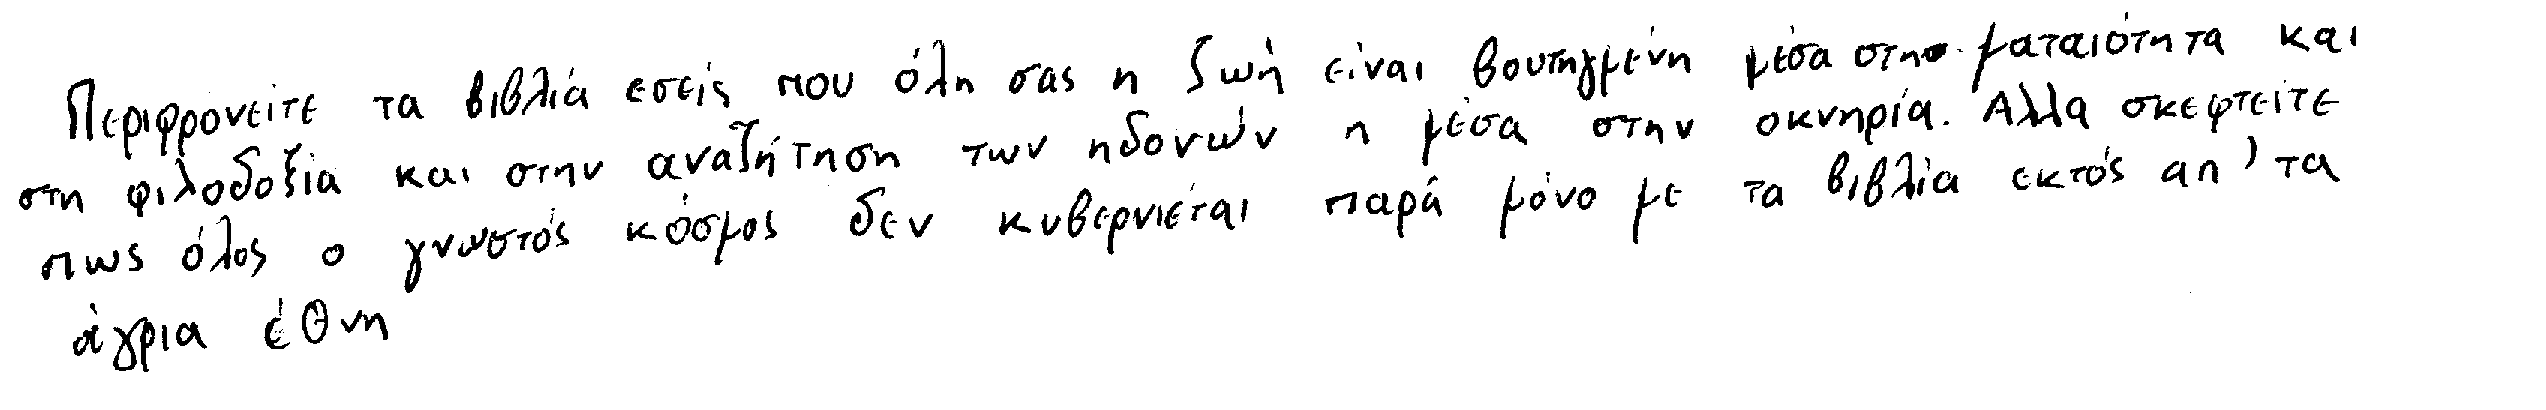 Περιφρονείτε τα βιβλιά εσείς που όλη σας η ζωή είναι βουτηγμένη μέσα στη ματαιότητα και
στη φιλοδοξία και στην αναζήτηση των ηδονών η μέσα στην οκνηρία. Αλλα σκεφτείτε
πως όλος ο γνωστός κόσμος δεν κυβερνιέται παρά μόνο με τα βιβλία εκτός απ' τα
άγρια έθνη